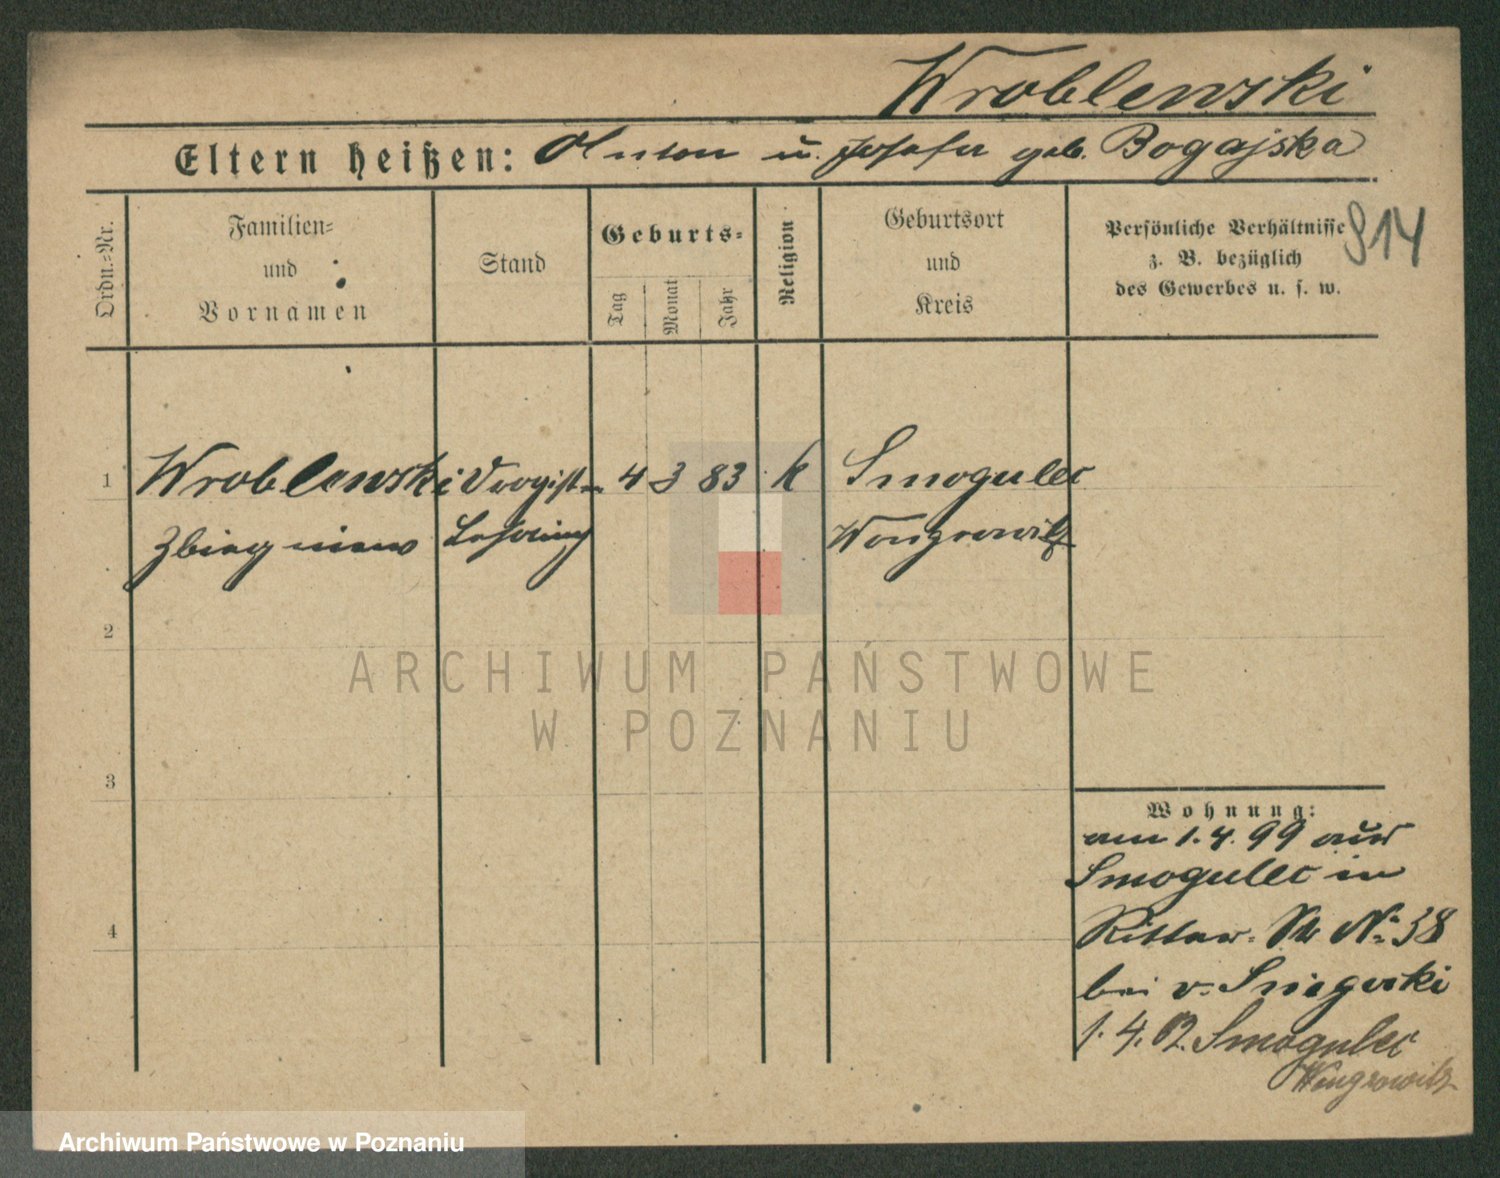 Wroblewski
Eltern heißen: Anton u. Josefa geb. Bogajska
Ordn.=Nr.
Familien=
und
Vornamen
Stand
Geburts=
Tag
Monat
Jahr
Religion
Geburtsort
und
Kreis
Persönliche Verhältnisse
z. B. bezüglich
des Gewerbes u. s. w.
914
1 Wroblewski Drogist= 4 3 83 k Smogulec
Zbiegniew Lehrling Wongrowitz
2
3
4
Wohnung:
am 1.4.99 aus
Smogulec in
Ritter-Str No 38
bei v.
1.4.02. Smogulec
Wongrowitz
ARCHIWUM PAŃSTWOWE
W POZNANIU
Archiwum Państwowe w Poznaniu